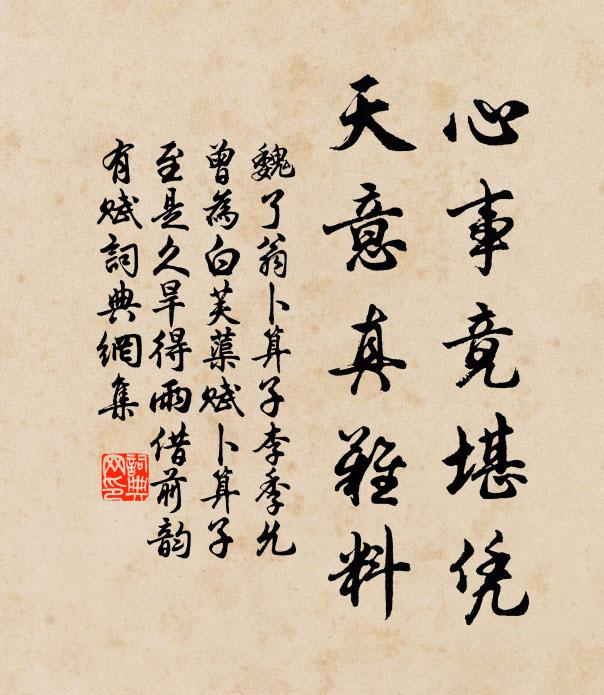 心事竟堪凭
天意真難料
魏了翁卜算子李季允
曾為白芙蕖賦卜算子
至是久旱得雨借前韵
有賦詞典網集
詞典
网印